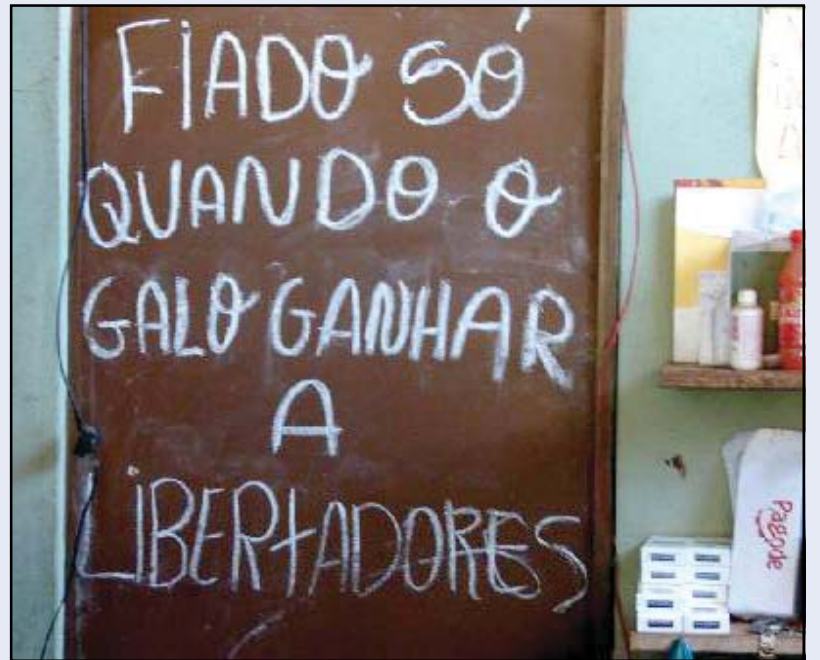 FIADO SÓ
QUANDO O
GALO GANHAR
A
LIBERTADORES
Pagode